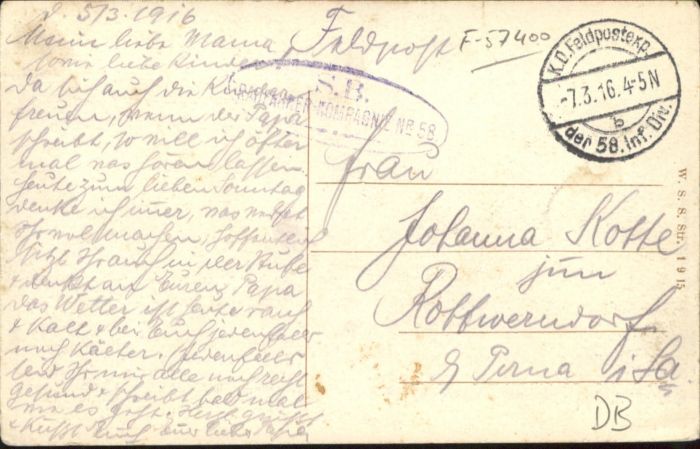 d. 5/3. 1916
Meine liebe Mama
sowie liebe Kinder
Da sich auch die Kinder
freuen, wenn der Papa
schreibt, so will ich öfter
mal was hören lassen.
Heute zum lieben Sonntag
denke ich immer, was werdet
Ihr wol machen, hoffentlich
sitzt Ihr auch in der Stube
& denkt an Euren Papa
das Wetter ist heute rauh
& kalt & bei Euch jedenfalls
noch kälter. Jedenfalls
seid Ihr mir alle noch recht
gesund & schreibt bald mal
wie es geht. Herzl. grüßt
& küßt Euch Euer lieber Papa
Feldpost
F-57400
S.B.
KOMPAGNIE NR 58
K.D. Feldpostexp.
-7.3.16. 4-5N
b
der 58. Inf. Div.
Frau
Johanna Kotte
zum
Rottwerndorf
b/ Pirna i/Sa
DB
W. S. S. Str. 1915